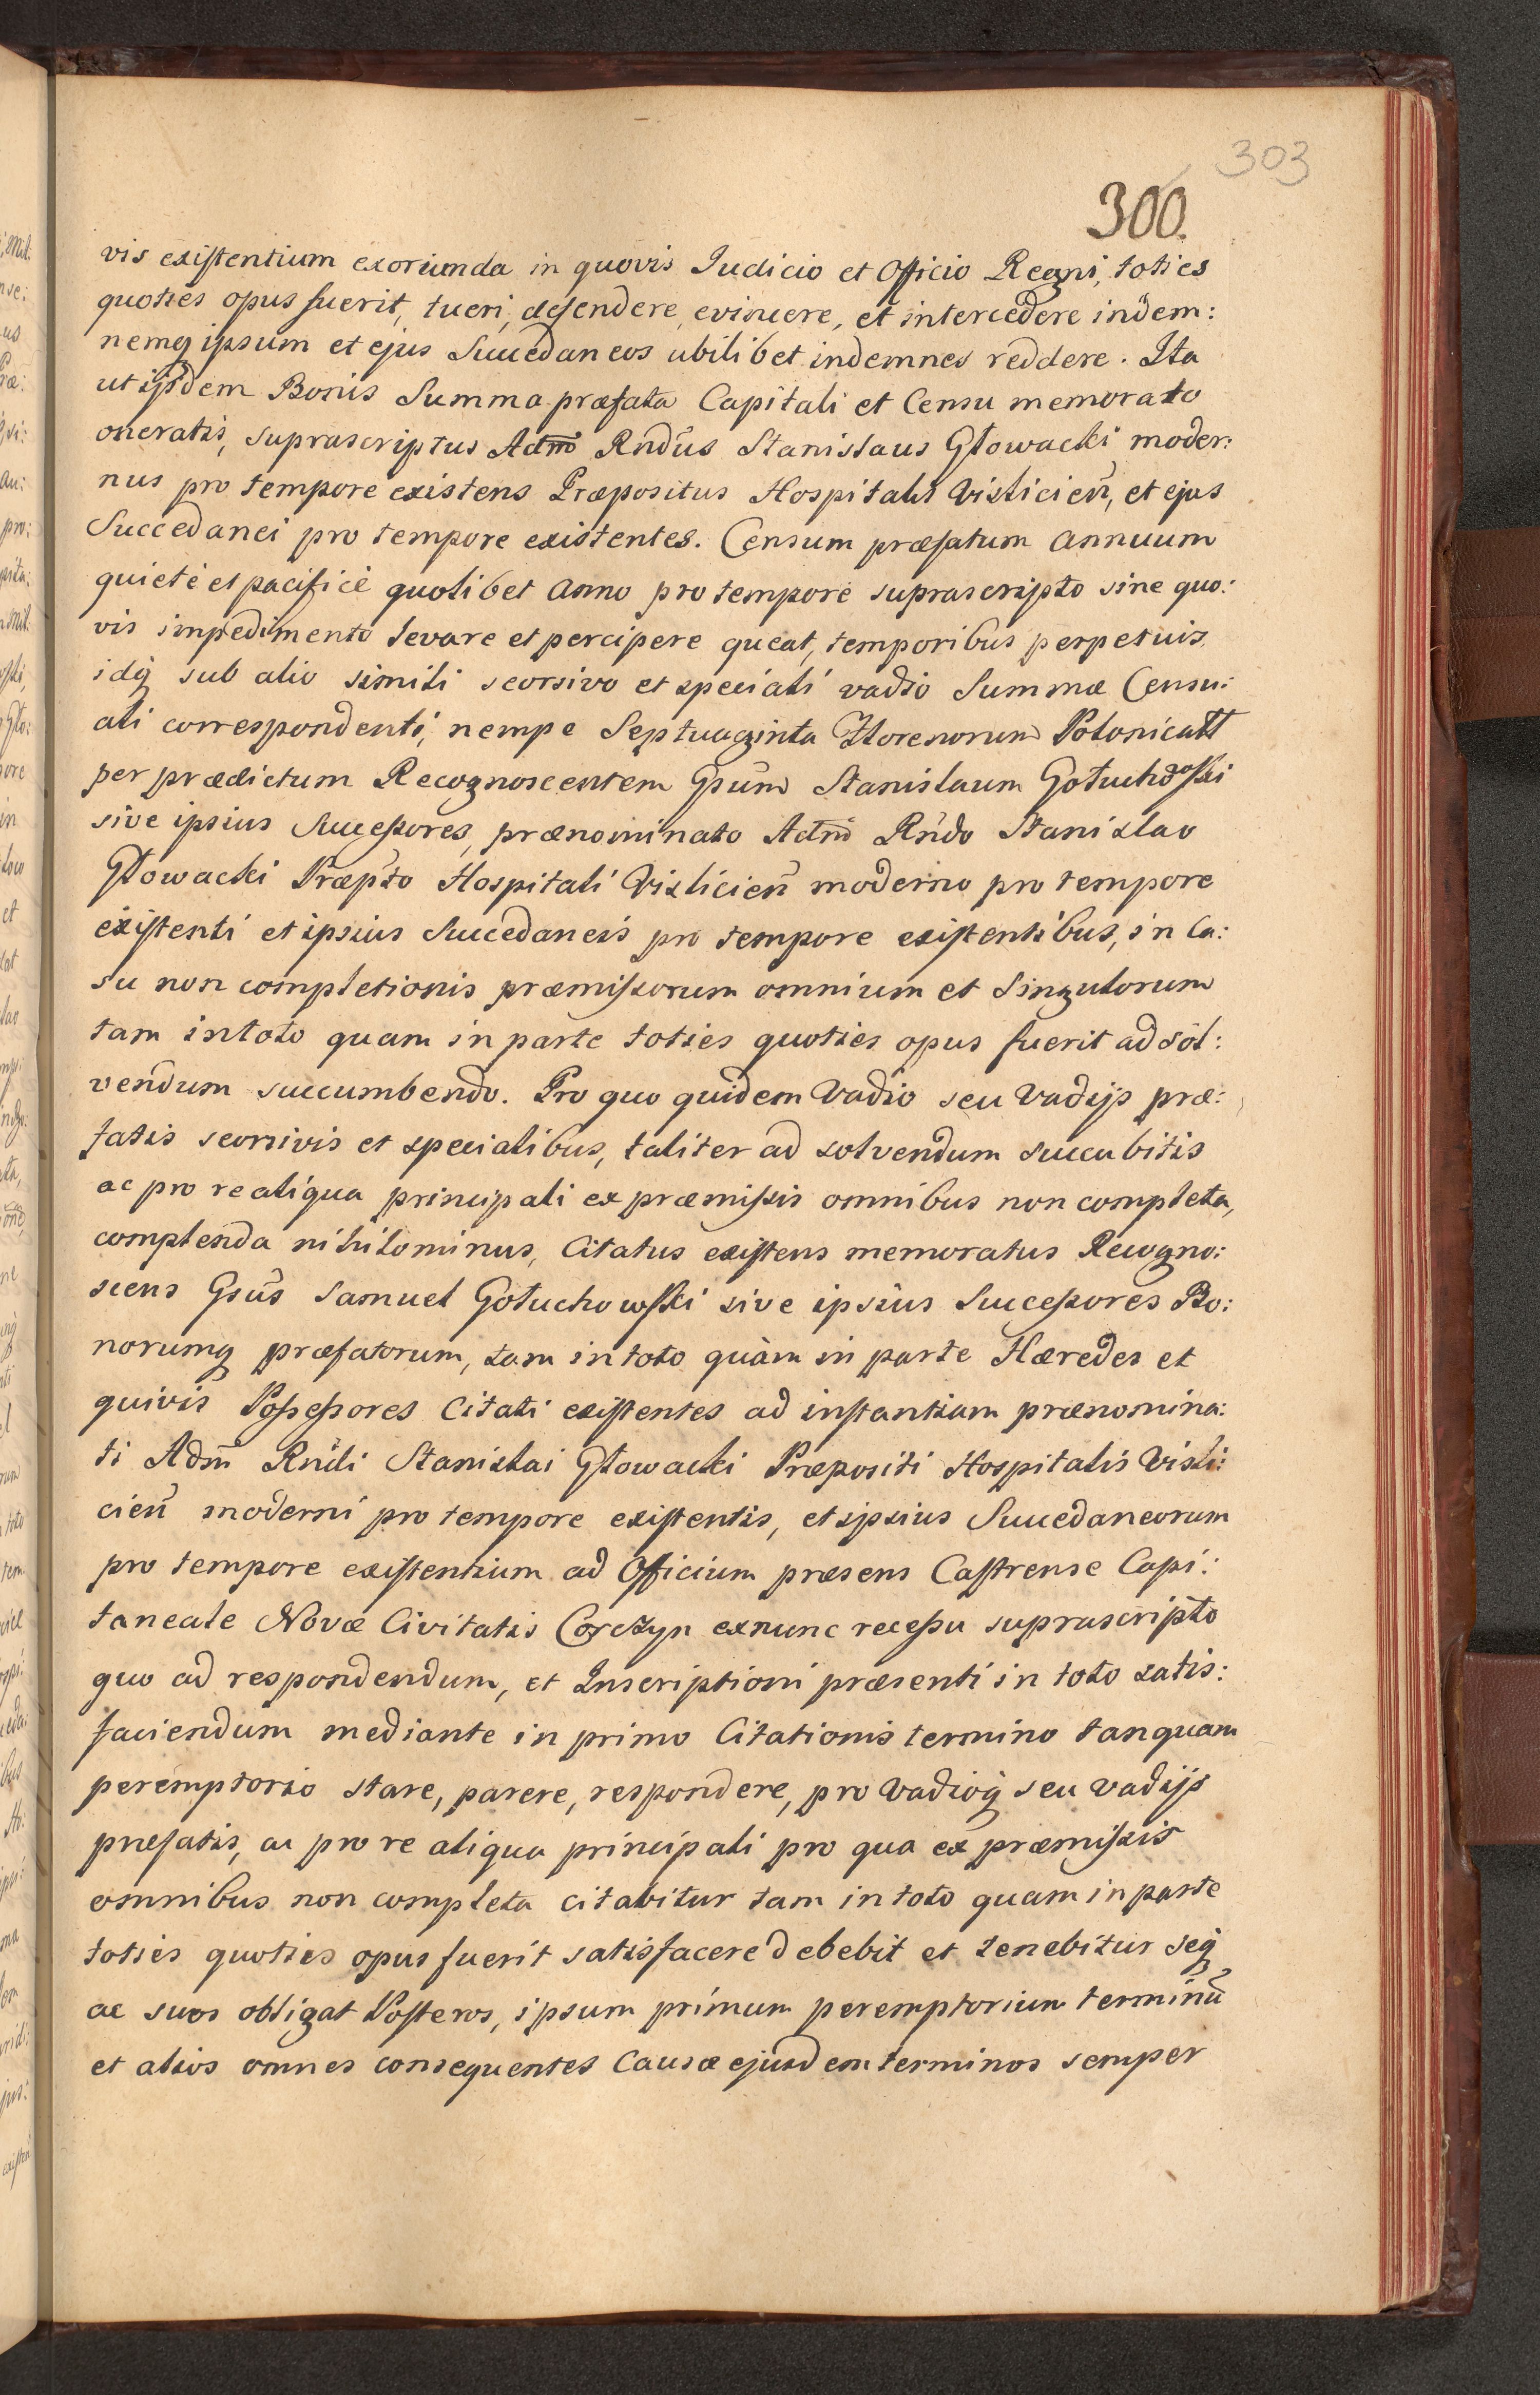 303
300.
vis existentium exorienda in quovis Judicio et Officio Regni, toties
quoties opus fuerit, tueri, defendere, evincere, et intercedere indem:
nemq ipsum et ejus Succedaneos ubilibet indemnes reddere. Ita
ut ijsdem Bonis Summa præfata Capitali et Censu memorato
oneratis, suprascriptus Adm̃ Rndūs Stanislaus Głowacki moder:
nus pro tempore existens Præpositus Hospitalis Visliciēn, et ejus
Succedanei pro tempore existentes. Censum præfatum annuum
quietè et pacificè quolibet anno pro tempore suprascripto sine quo:
vis impedimento levare et percipere queat, temporibus perpetuis
idq sub alio simili seorsivo et speciali vadio Summæ Censu:
ali correspondenti, nempe Septuaginta Florenorum Polonicall
per prædictum Recognoscentem Gsūm Stanislaum Gołuchoski
sive ipsius Successores, prænominato Adm̃ Rńdo Stanislao
Głowacki Præpto Hospitali Visliciēn moderno pro tempore
existenti et ipsius Succedaneis pro tempore existentibus, in Ca:
su non completionis præmissorum omnium et Singulorum
tam in toto quam in parte toties quoties opus fuerit ad sol:
vendum succumbendo. Pro quo quidem Vadio seu Vadijs præ:
fatis seorsivis et specialibus, taliter ad solvendum succubitis
ac pro re aliqua principali ex præmissis omnibus non completa,
complenda nihilominus, Citatus existens memoratus Recogno:
scens Gsūs Samuel Gołuchowski sive ipsius Successores Bo:
norumq præfatorum, tam in toto quàm in parte Hæredes et
quivis Possessores Citati existentes ad instantiam prænomina:
ti Adm̃ Rńdi Stanislai Głowacki Præpositi Hospitalis Visli:
ciēn moderni pro tempore existentis, et ipsius Succedaneorum
pro tempore existentium ad Officium præsens Castrense Capi:
taneale Novæ Civitatis Corczyn exnunc recessu suprascripto
quo ad respondendum, et Inscriptioni præsenti in toto satis:
faciendum mediante in primo Citationis termino tanquam
peremptorio stare, parere, respondere, pro Vadioq seu Vadijs
præfatis, ac pro re aliqua principali pro qua ex præmissis
omnibus non completa citabitur tam in toto quam in parte
toties quoties opus fuerit satisfacere debebit et tenebitur seq
ac suos obligat Posteros, ipsum primum peremptorium terminū
et alios omnes consequentes Causæ ejusdem terminos semper